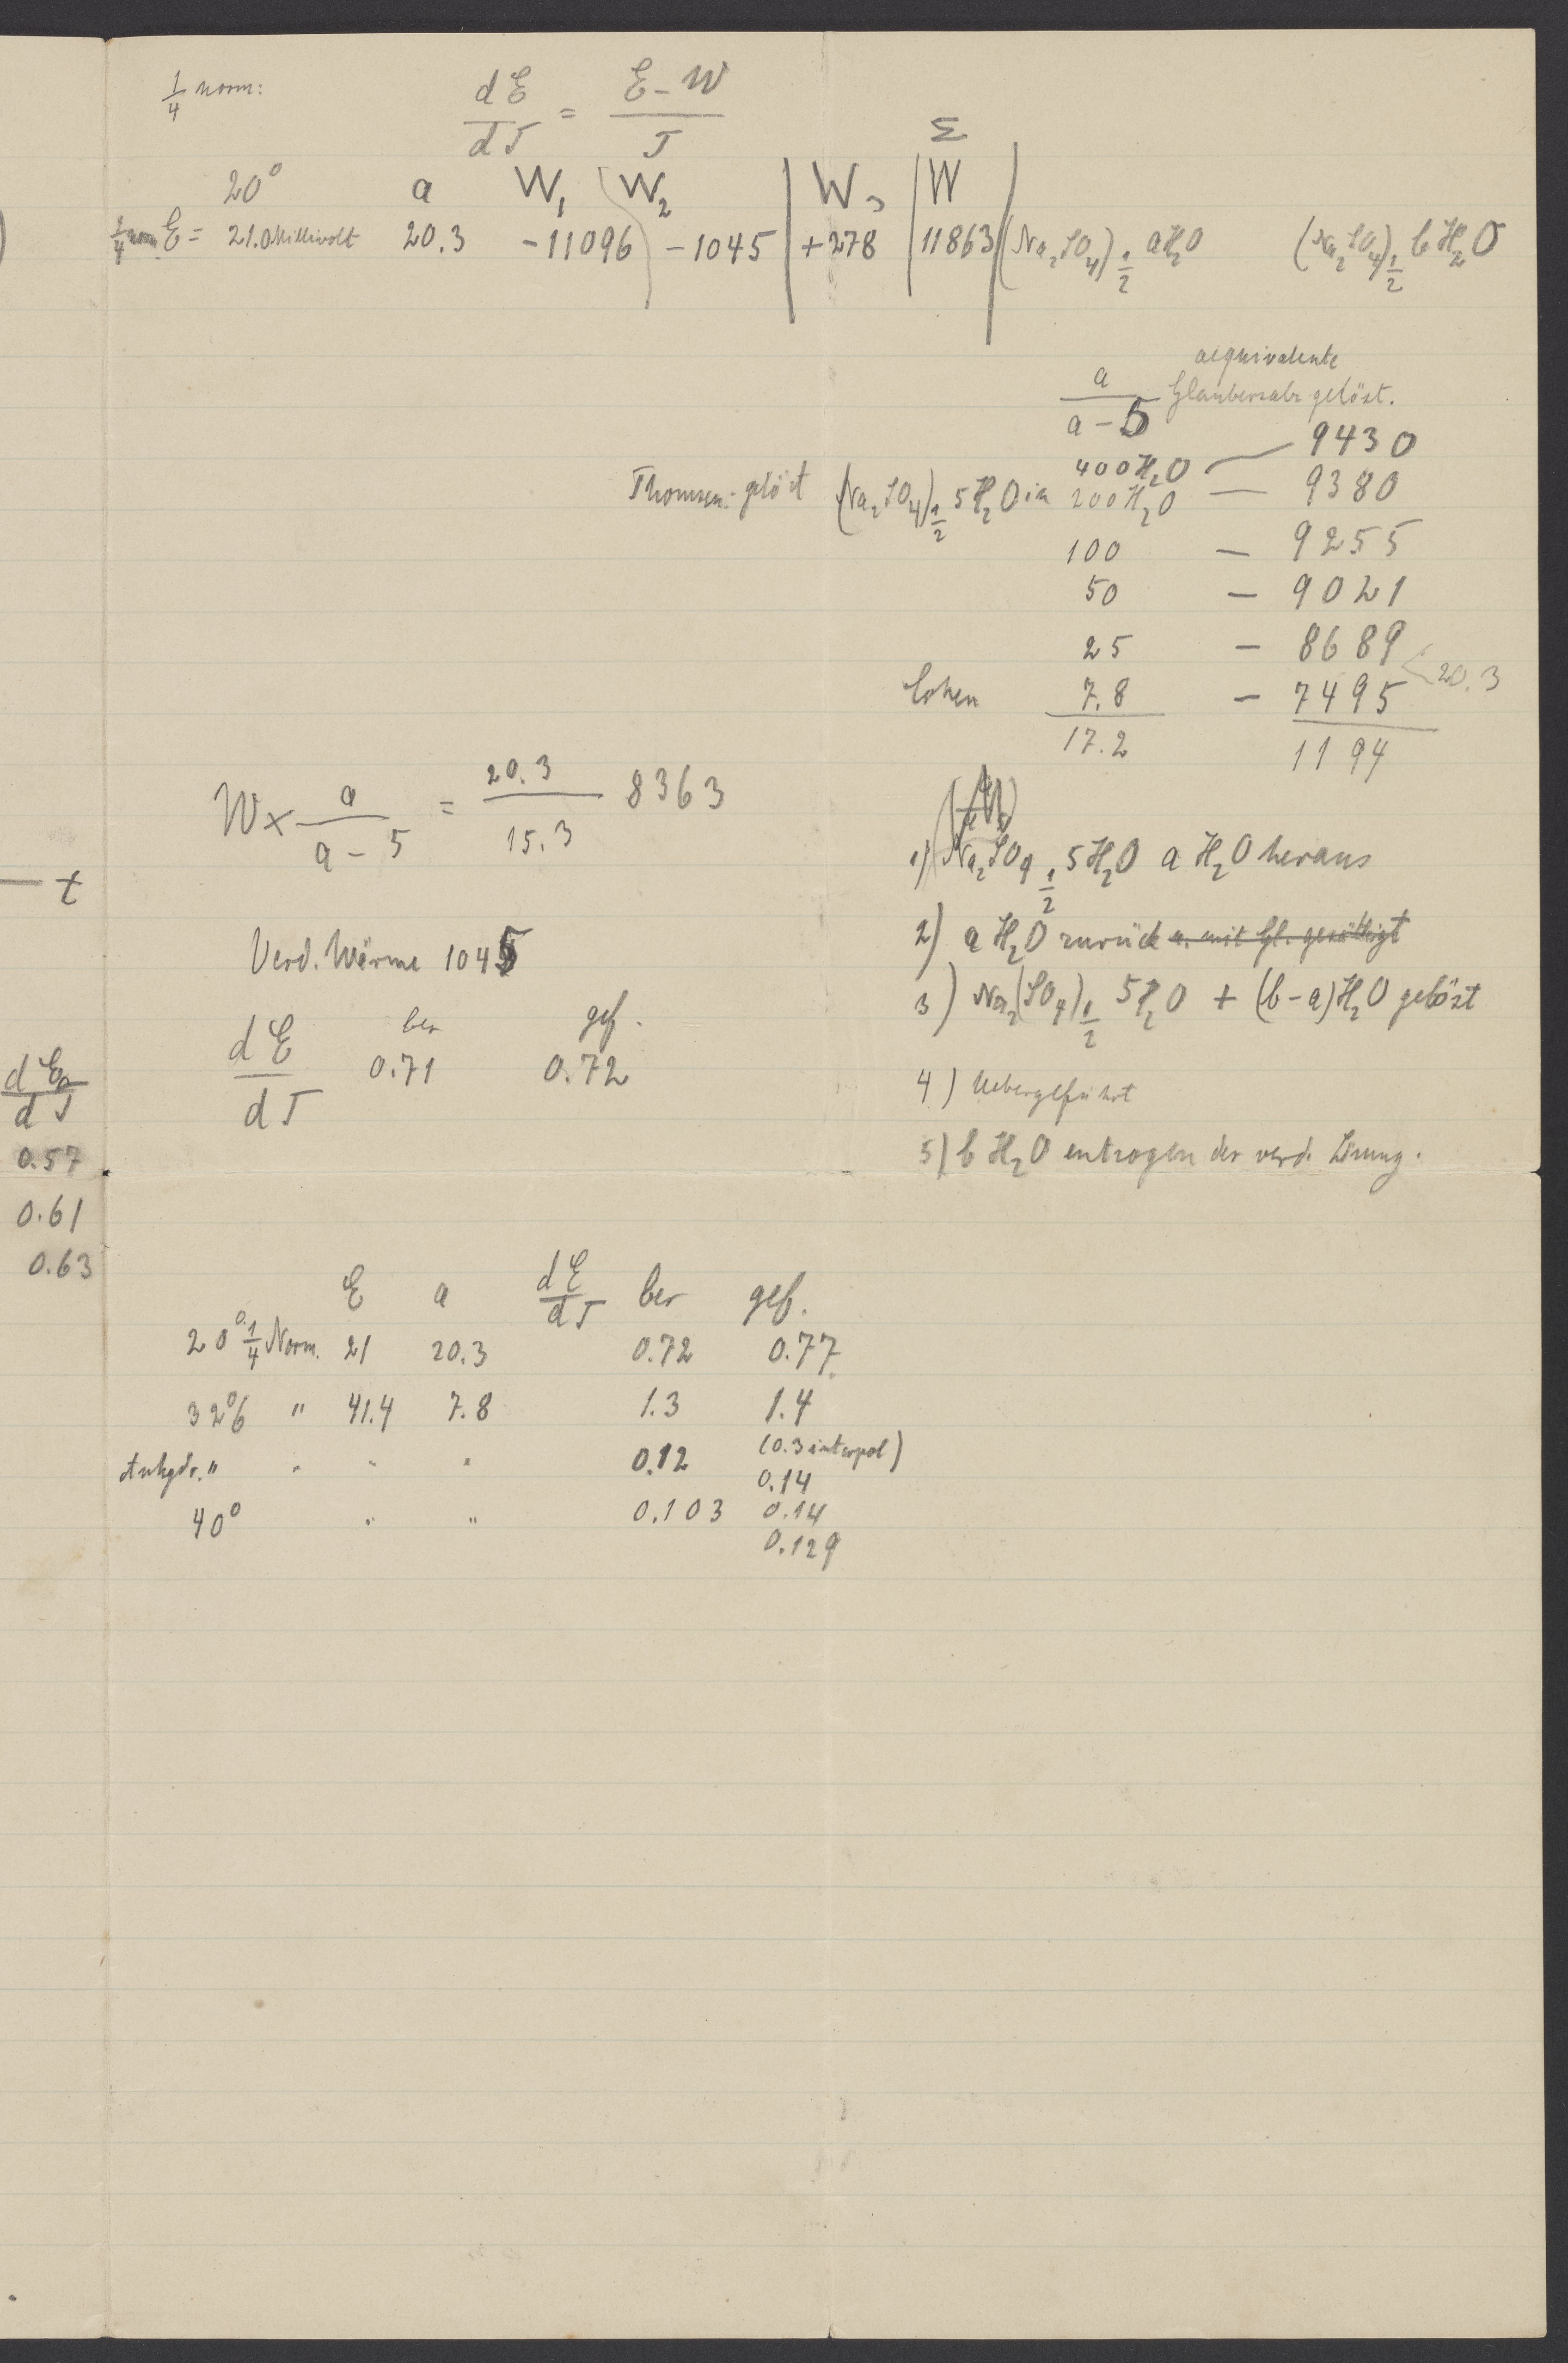 1/4 norm:
dE/dT = (E - W)/T
Σ
20° a W₁ W₂ W₃ W
1/4 norm. E = 21.0 Millivolt 20.3 -11096 -1045 +278 11863 (Na₂SO₄)½ aH₂O (Na₂SO₄)½ bH₂O
a/(a-5) aequivalente
Glaubersalz gelöst.
400 H₂O — 9430
Thomsen: gelöst (Na₂SO₄)½ 5H₂O in 200 H₂O — 9380
100 — 9255
50 — 9021
25 — 8689
< 20.3
Cohen 7.8 — 7495
17.2 1194
W × a/(a-5) = 20.3/15.3 8363
1) Na₂SO₄ ½ 5H₂O a H₂O heraus
2) a H₂O zurück u. mit Gl. gesättigt
3) Na₂(SO₄)½ 5H₂O + (b-a)H₂O gelöst
4) Uebergeführt
5) b H₂O entzogen der verd. Lösung.
Verd. Wärme 1045
ber gef.
dE/dT 0.71 0.72
t
dE/dT
0.57
0.61
0.63
E a dE/dT ber gef.
20° 1/4 Norm. 21 20.3 0.72 0.77
32°6 " 41.4 7.8 1.3 1.4
Anhydr. " " " " 0.12 (0.3 interpol)
0.14
40° " " 0.103 0.14
0.129